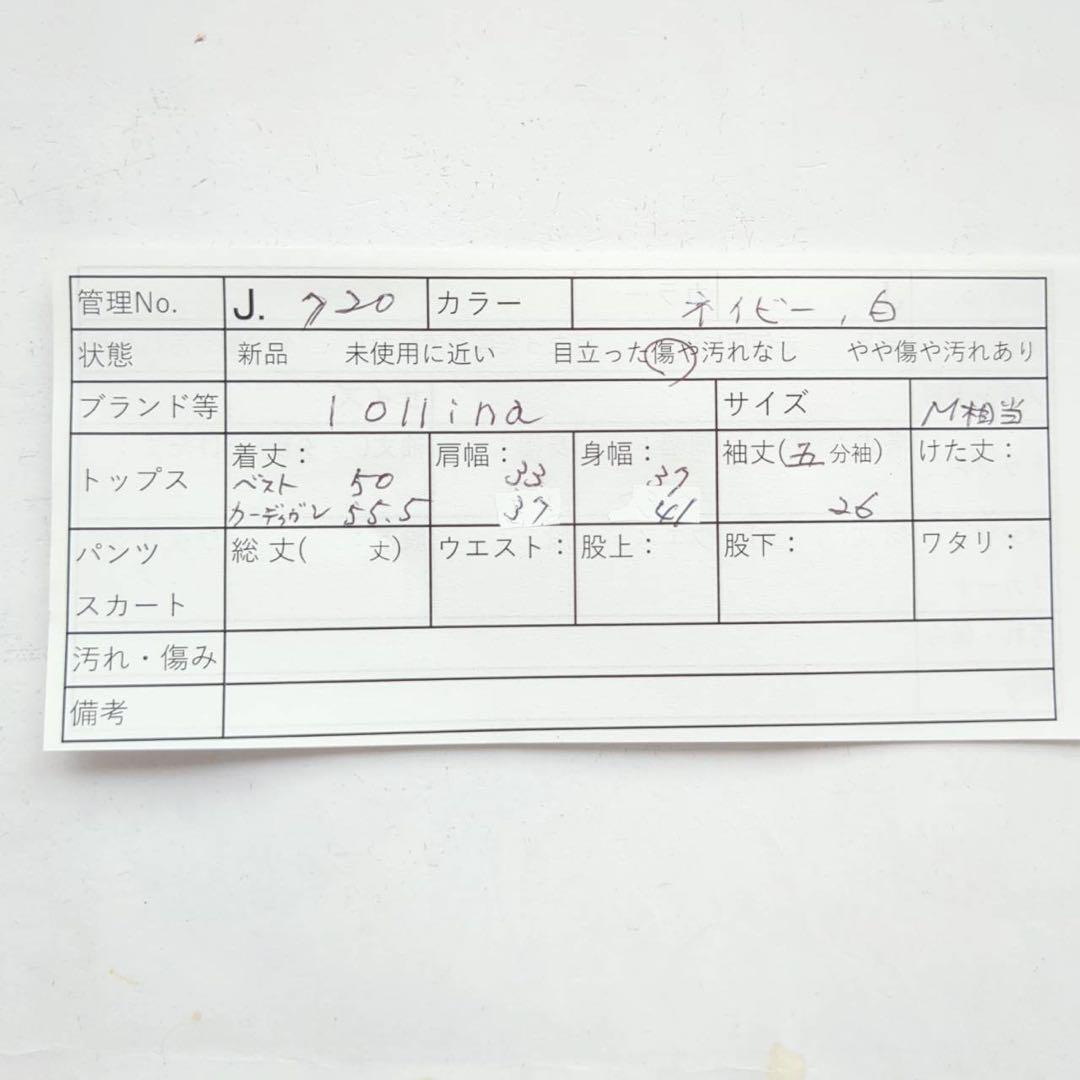 管理No. J. 720 カラー ネイビー, 白
状態 新品 未使用に近い 目立った傷や汚れなし やや傷や汚れあり
ブランド等 lollina サイズ M相当
トップス 着丈: 肩幅: 身幅: 袖丈(五分袖) けた丈:
ベスト 50 33 37
カーディガン 55.5 37 41 26
パンツ 総丈( 丈) ウエスト: 股上: 股下: ワタリ:
スカート
汚れ・傷み
備考